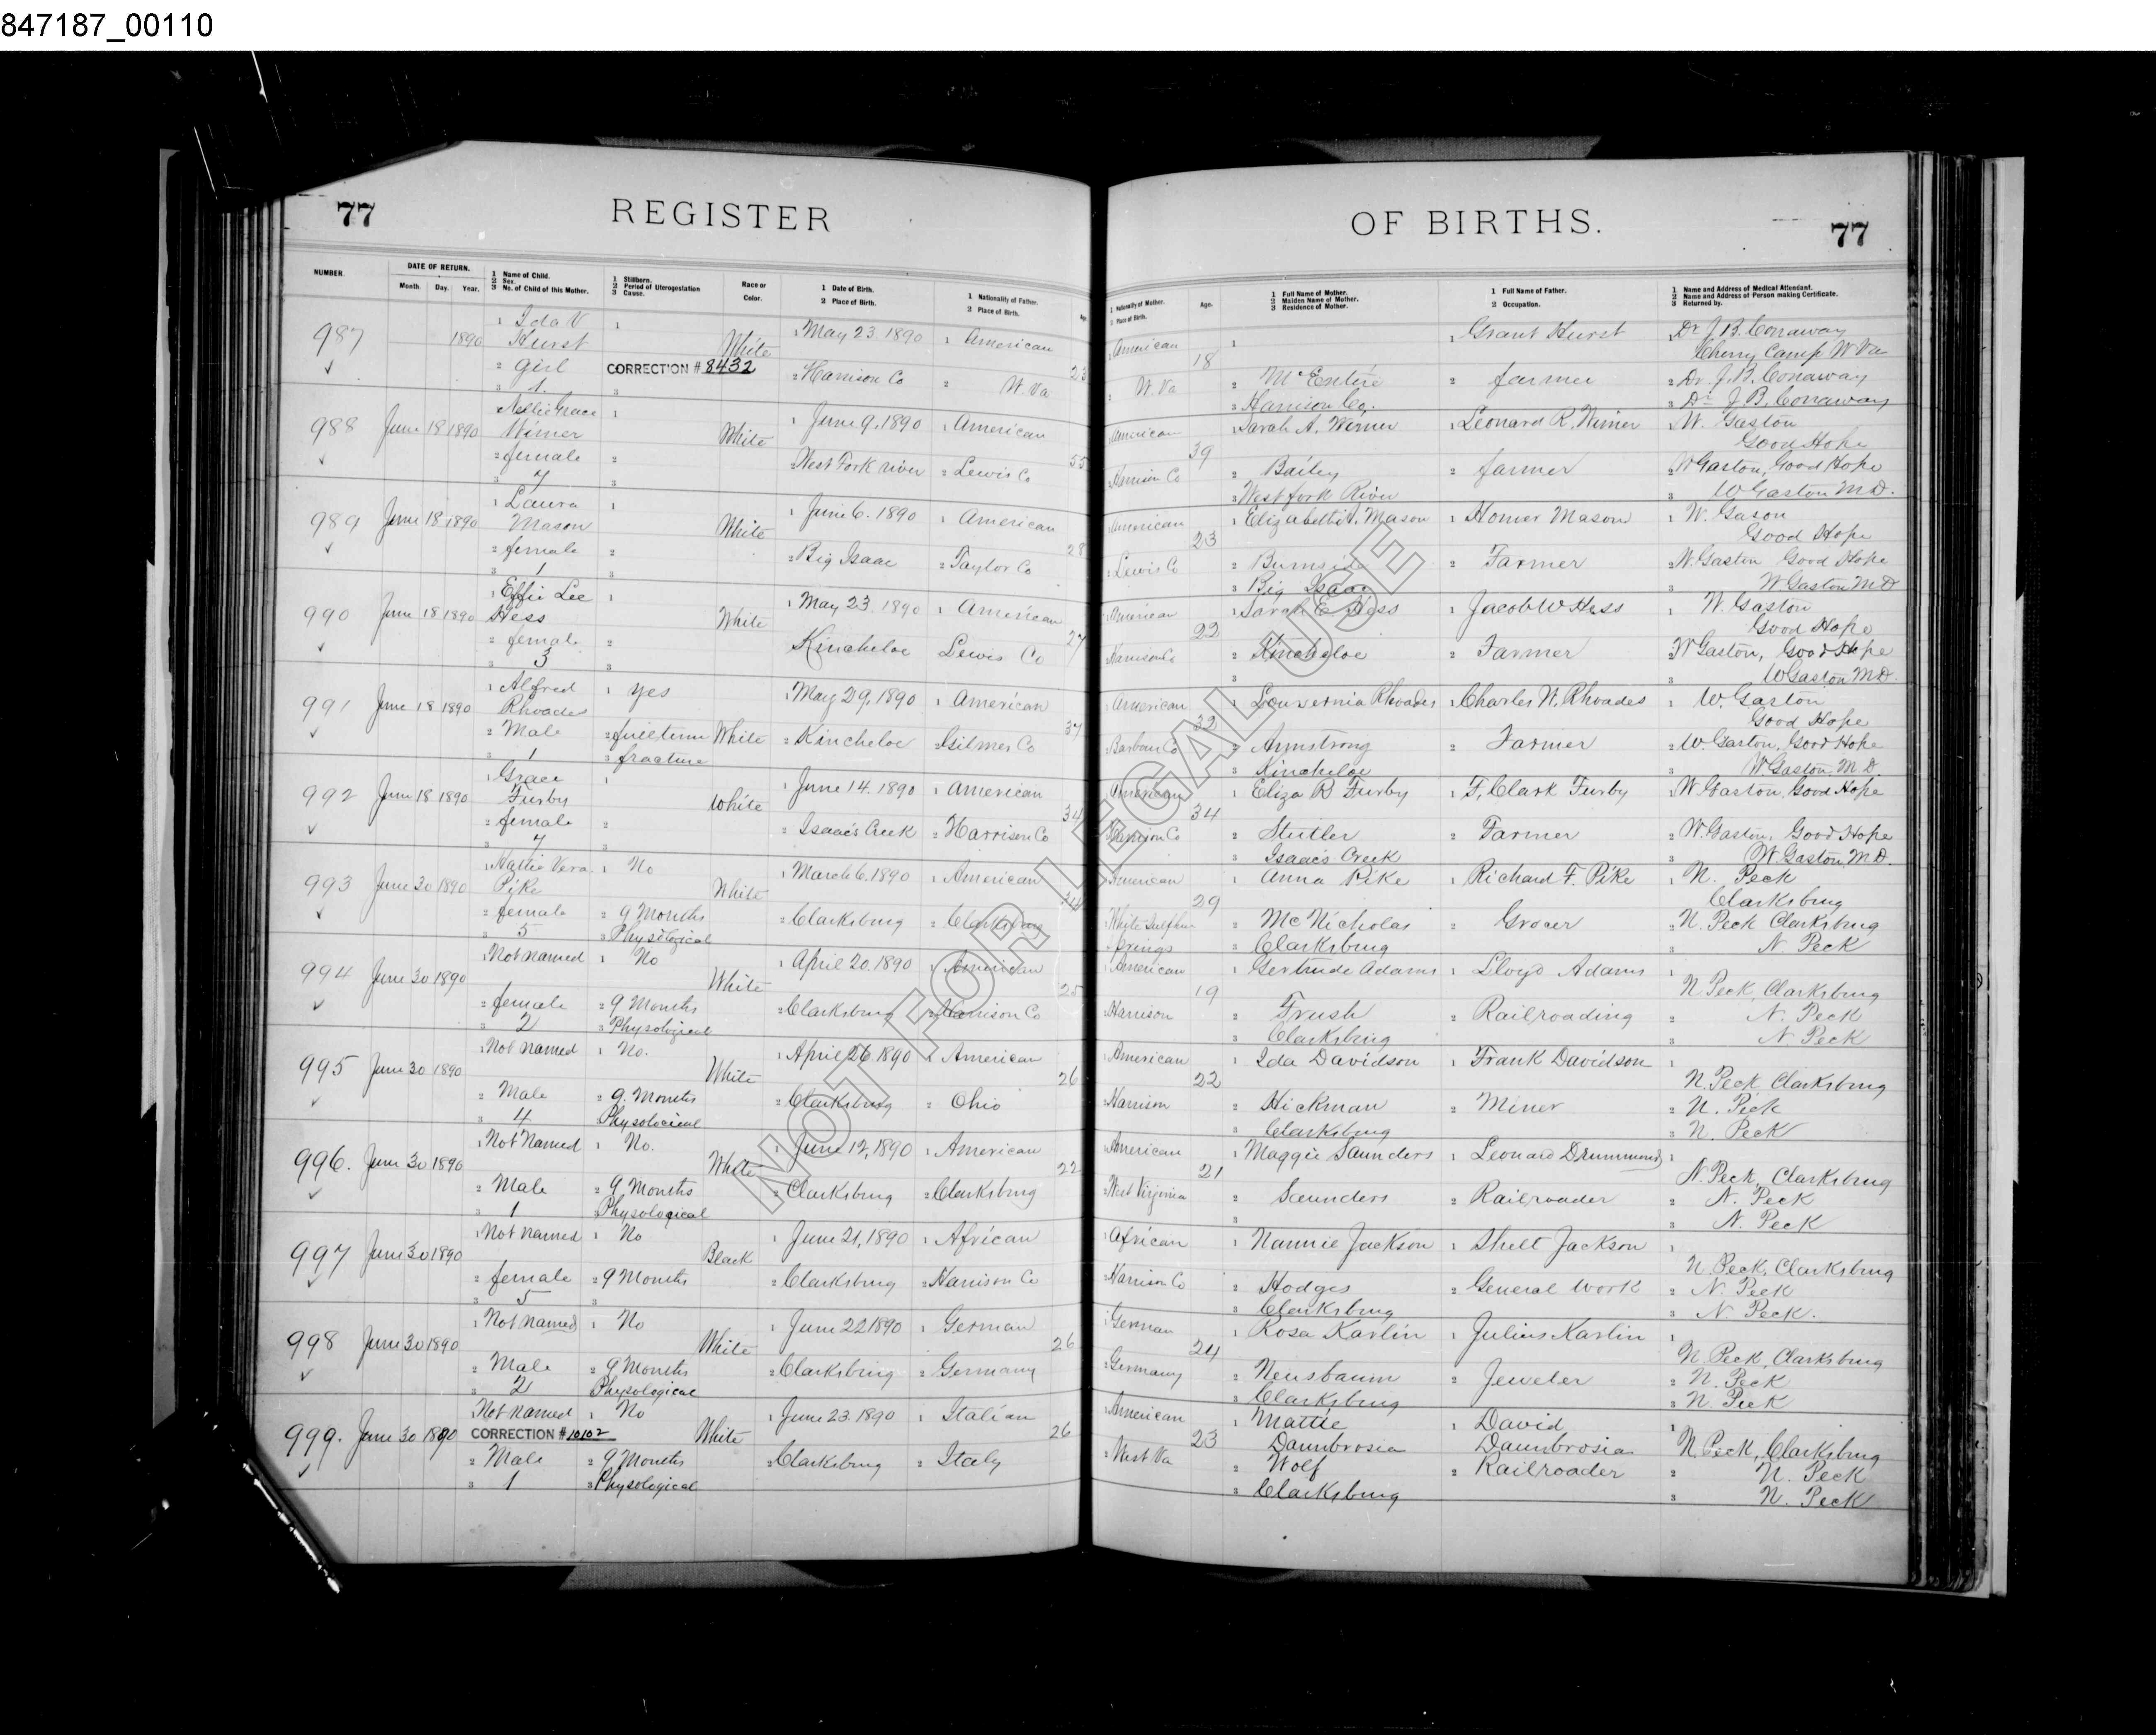 847187_00110
77 REGISTER OF BIRTHS. 77
NUMBER.
DATE OF RETURN.
Month. Day. Year.
1 Name of Child.
2 Sex.
3 No. of Child of this Mother.
1 Stillborn.
2 Period of Uterogestation
3 Cause.
Race or
Color.
1 Date of Birth.
2 Place of Birth.
1 Nationality of Father.
2 Place of Birth.
Age.
1 Nationality of Mother.
2 Place of Birth.
Age.
1 Full Name of Mother.
2 Maiden Name of Mother.
3 Residence of Mother.
1 Full Name of Father.
2 Occupation.
1 Name and Address of Medical Attendant.
2 Name and Address of Person making Certificate.
3 Returned by.
987 1890 1 Ida V Hurst 1 White 1 May 23. 1890 1 American 23 1 American 18 1 1 Grant Hurst 1 Dr J. B. Conaway
Cherry Camp W Va
2 girl CORRECTION # 8432 2 Harrison Co 2 W. Va 2 W. Va 2 McEntire 2 farmer 2 Dr. J. B. Conaway
3 1. 3 3 Harrison Co. 3 Dr J B. Conaway
988 June 18 1890 1 Nellie Grace Wimer 1 White 1 June 9. 1890 1 American 55 1 American 39 1 Sarah A. Wimer 1 Leonard R. Wimer 1 W. Gaston
Good Hope
2 female 2 2 West Fork river 2 Lewis Co 2 Harrison Co 2 Bailey 2 farmer 2 W Gaston, Good Hope
3 7 3 3 West fork River 3 W Gaston M.D.
989 June 18 1890 1 Laura Mason 1 White 1 June 6. 1890 1 American 28 1 American 23 1 Elizabeth Mason 1 Homer Mason 1 W. Gason
Good Hope
2 female 2 2 Big Isaac 2 Taylor Co 2 Lewis Co 2 Burnside 2 Farmer 2 W. Gaston Good Hope
3 1 3 3 Big Isaac 3 W Gaston M D
990 June 18 1890 1 Effie Lee Hess 1 White 1 May 23. 1890 1 American 27 1 American 22 1 Sarah E Hess 1 Jacob W Hess 1 W. Gaston
Good Hope
2 female 2 Kincheloe Lewis Co 2 Harrison Co 2 Kincheloe 2 Farmer 2 W Gaston, Good Hope
3 3 3 3 3 W Gaston M.D.
991 June 18 1890 1 Alfred Rhoades 1 yes White 1 May 29, 1890 1 American 37 1 American 32 1 Louvernia Rhoades 1 Charles W. Rhoades 1 W. Gaston
Good Hope
2 Male 2 full term 2 Kincheloe 2 Gilmer Co 2 Barbour Co 2 Armstrong 2 Farmer 2 W. Gaston, Good Hope
3 1 3 fracture 3 Kincheloe 3 W Gaston, M.D.
992 June 18 1890 1 Grace Furby 1 White 1 June 14. 1890 1 American 34 1 American 34 1 Eliza R Furby 1 F. Clark Furby 1 W. Gaston, Good Hope
2 female 2 2 Isaac's Creek 2 Harrison Co 2 Harrison Co 2 Stutler 2 Farmer 2 W. Gaston, Good Hope
3 7 3 3 Isaac's Creek 3 W. Gaston, M.D.
993 June 30 1890 1 Hattie Vera Pike 1 No White 1 March 6. 1890 1 American 1 American 29 1 Anna Pike 1 Richard F. Pike 1 N. Peck
Clarksburg
2 female 2 9 Months 2 Clarksburg 2 Clarksburg 2 White Sulphur Springs 2 McNicholas 2 Grocer 2 N. Peck Clarksburg
3 5 3 Physiological 3 Clarksburg 3 N. Peck
994 June 30 1890 1 Not named 1 No White 1 April 20. 1890 1 American 25 1 American 19 1 Gertrude Adams 1 Lloyd Adams 1 N Peck, Clarksburg
2 female 2 9 Months 2 Clarksburg 2 Harrison Co 2 Harrison 2 Trush 2 Railroading 2 N. Peck
3 2 3 Physological 3 Clarksburg 3 N Peck
995 June 30 1890 1 Not named 1 No. White 1 April 26 1890 1 American 26 1 American 22 1 Ida Davidson 1 Frank Davidson 1 N. Peck Clarksburg
2 Male 2 9. Months 2 Clarksburg 2 Ohio 2 Harrison 2 Hickman 2 Miner 2 N. Peck
3 4 Physolocical 3 Clarksburg 3 N. Peck
996. June 30 1890 1 Not Named 1 No. White 1 June 12, 1890 1 American 22 1 American 21 1 Maggie Saunders 1 Leonard Drummond 1 N. Peck, Clarksburg
2 Male 2 9 Months 2 Clarksburg 2 Clarksburg 2 West Virginia 2 Saunders 2 Railroader 2 N. Peck
3 1 3 Physological 3 3 N. Peck
997 June 30 1890 1 Not named 1 No Black 1 June 21, 1890 1 African 1 African 1 Nannie Jackson 1 Shelt Jackson 1 N. Peck, Clarksburg
2 female 2 9 Months 2 Clarksburg 2 Harrison Co 2 Harrison Co 2 Hodges 2 General work 2 N. Peck
3 5 3 3 Clarksburg 3 N. Peck.
998 June 30 1890 1 Not named 1 No White 1 June 22 1890 1 German 26 1 German 24 1 Rosa Karlin 1 Julius Karlin 1 N. Peck, Clarksburg
2 Male 2 9 Months 2 Clarksburg 2 Germany 2 Germany 2 Neusbaum 2 Jeweler 2 N. Peck
3 2 Physological 3 Clarksburg 3 N. Peck
999. June 30 1890 1 Not named 1 No White 1 June 23. 1890 1 Italian 26 1 American 23 1 Mattie Daunbrosia 1 David Daunbrosia 1 N. Peck, Clarksburg
CORRECTION # 10102
2 Male 2 9 Months 2 Clarksburg 2 Italy 2 West Va 2 Wolf 2 Railroader 2 N. Peck
3 1 3 Physological 3 Clarksburg 3 N. Peck
NOT FOR LEGAL USE